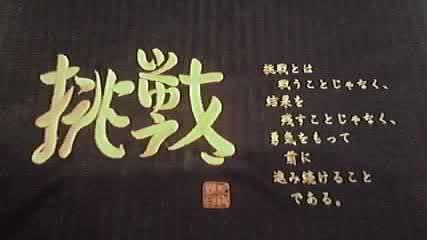 挑戦
挑戦とは
戦うことじゃなく、
結果を
残すことじゃなく、
勇気をもって
前に
進み続けること
である。